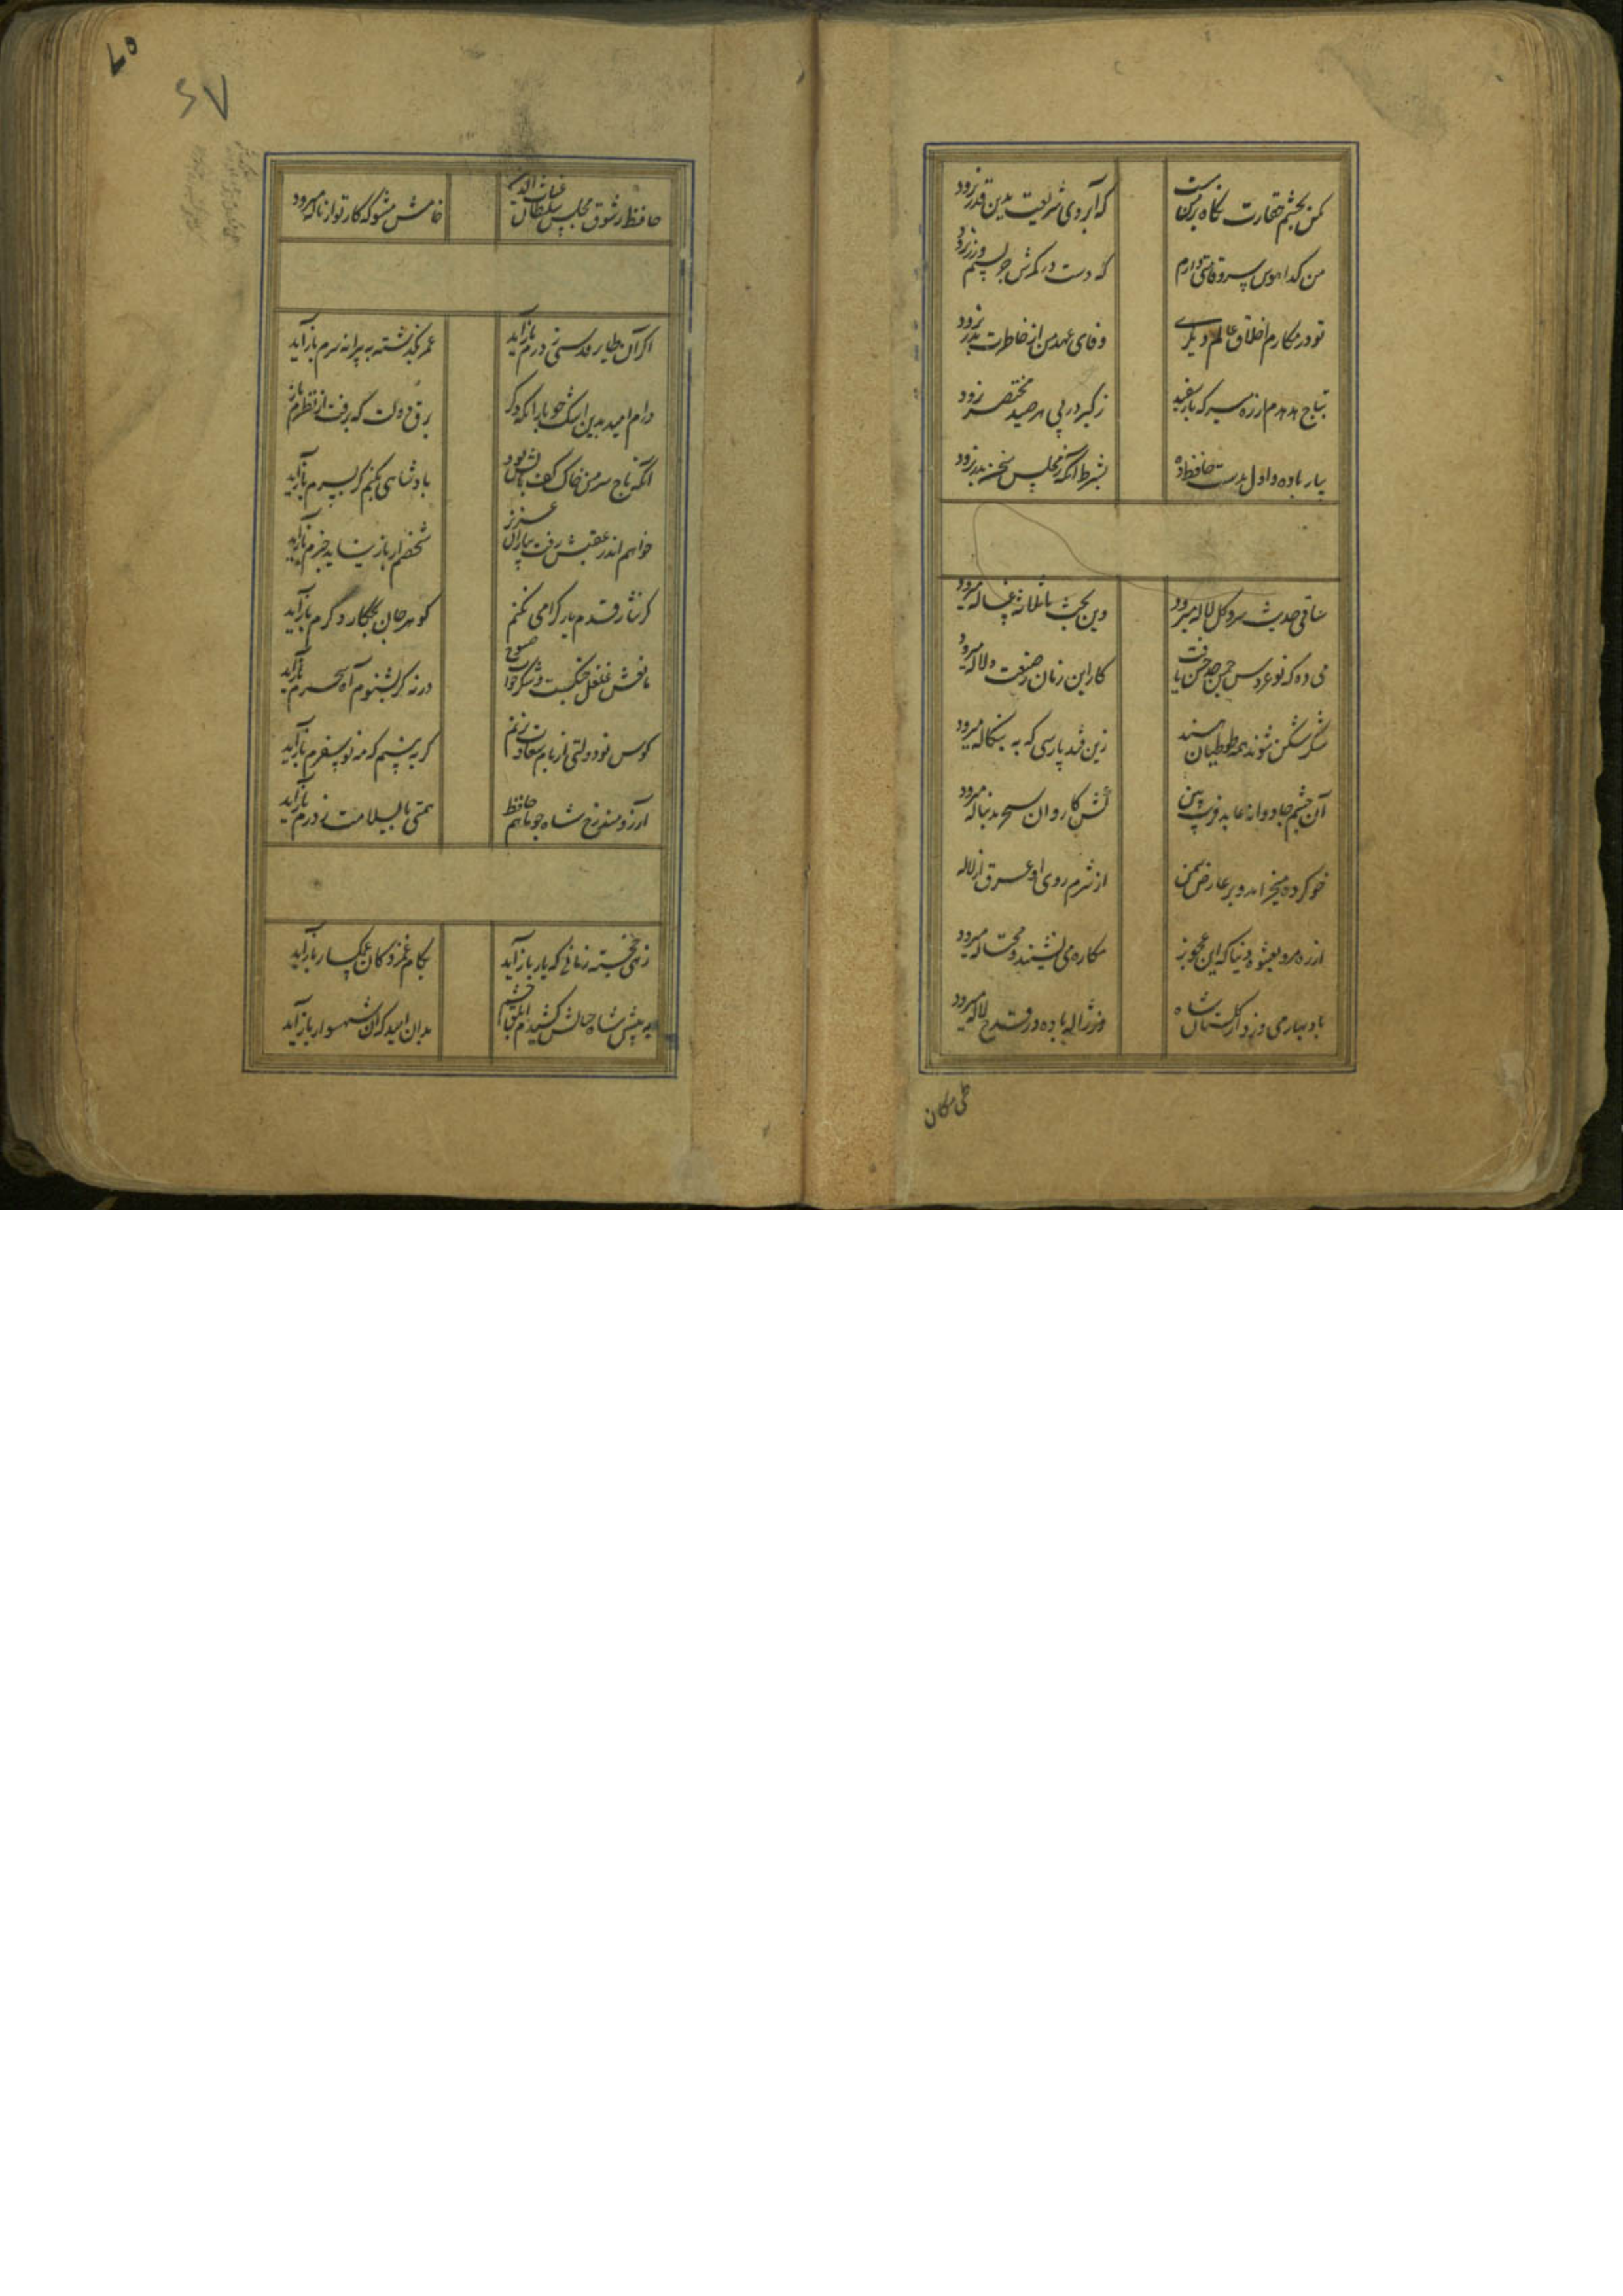 مکن بچشم حقارت نگاه بر من مست که آبروی شریعت بدین قدر نرود
من گدا هوس سروقامتی دارم که دست در کمرش جز بسیم و زر نرود
تو در مکارم اخلاق عالم دیگری وفای عهد من از خاطرت بدر نرود
بتاج هدهدم از ره مبر که باز سفید ز کبر در پی هر صید مختصر نرود
بیار باده و اول بدست حافظ ده بشرط آنکه ز مجلس سخن بدر نرود
ساقی حدیث سرو و گل و لاله میرود وین بحث با ثلاثه غساله میرود
می ده که نوعروس چمن حد حسن یافت کار این زمان ز صنعت دلاله میرود
شکر شکن شوند همه طوطیان هند زین قند پارسی که به بنگاله میرود
آن چشم جادوانه عابد فریب بین کش کاروان سحر بدنباله میرود
خوی کرده میخرامد و بر عارض سمن از شرم روی او عرق از لاله
از ره مرو بعشوه دنیا که این عجوز مکاره می نشیند و محتاله میرود
باد بهار می وزد از گلستان شاه وز ژاله باده در قدح لاله میرود
طی مکان
٦٥
٦٧
حافظ ز شوق مجلس سلطان غیاث الدین خامش مشو که کار تو از ناله میرود
اگر آن طایر قدسی ز درم باز آید عمر بگذشته به پیرانه سرم باز آید
دارم امید بدین اشک چو باران که دگر برق دولت که برفت از نظرم باز
آنکه تاج سر من خاک کف پایش بود پادشاهی بکنم گر بسرم باز آید
خواهم اندر عقبش رفت بیاران عزیز شخصم ار باز نیاید خبرم باز آید
گر نثار قدم یار گرامی نکنم گوهر جان بچه کار دگرم باز آید
مانعش غلغل چنگست و شکرخواب صبوح ورنه گر بشنود آه سحرم باز آید
کوس نو دولتی از بام سعادت بزنم گر به بینم که مه نو سفرم باز آید
آرزومند رخ شاه چو ماهم حافظ همتی تا بسلامت ز درم باز آید
زهی خجسته زمانی که یار باز آید بکام غمزدگان غمگسار باز آید
به پیش شاه خیالش کشیدم ابلق چشم بدان امید که آن شهسوار باز آید